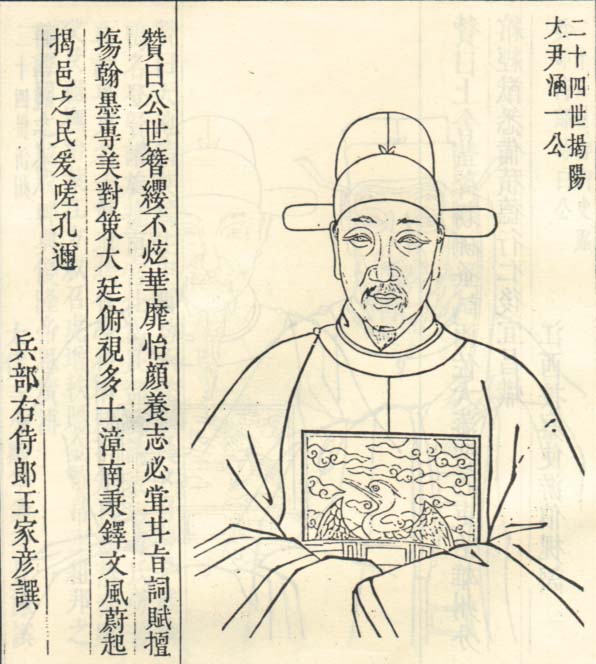 二十四世揭陽
大尹涵一公
贊曰公世簪纓不炫華靡怡顔養志必甞甘旨詞賦擅
塲翰墨專美對策大廷俯視多士漳南秉鐸文風蔚起
揭邑之民爰嗟孔邇
兵部右侍郎王家彥譔